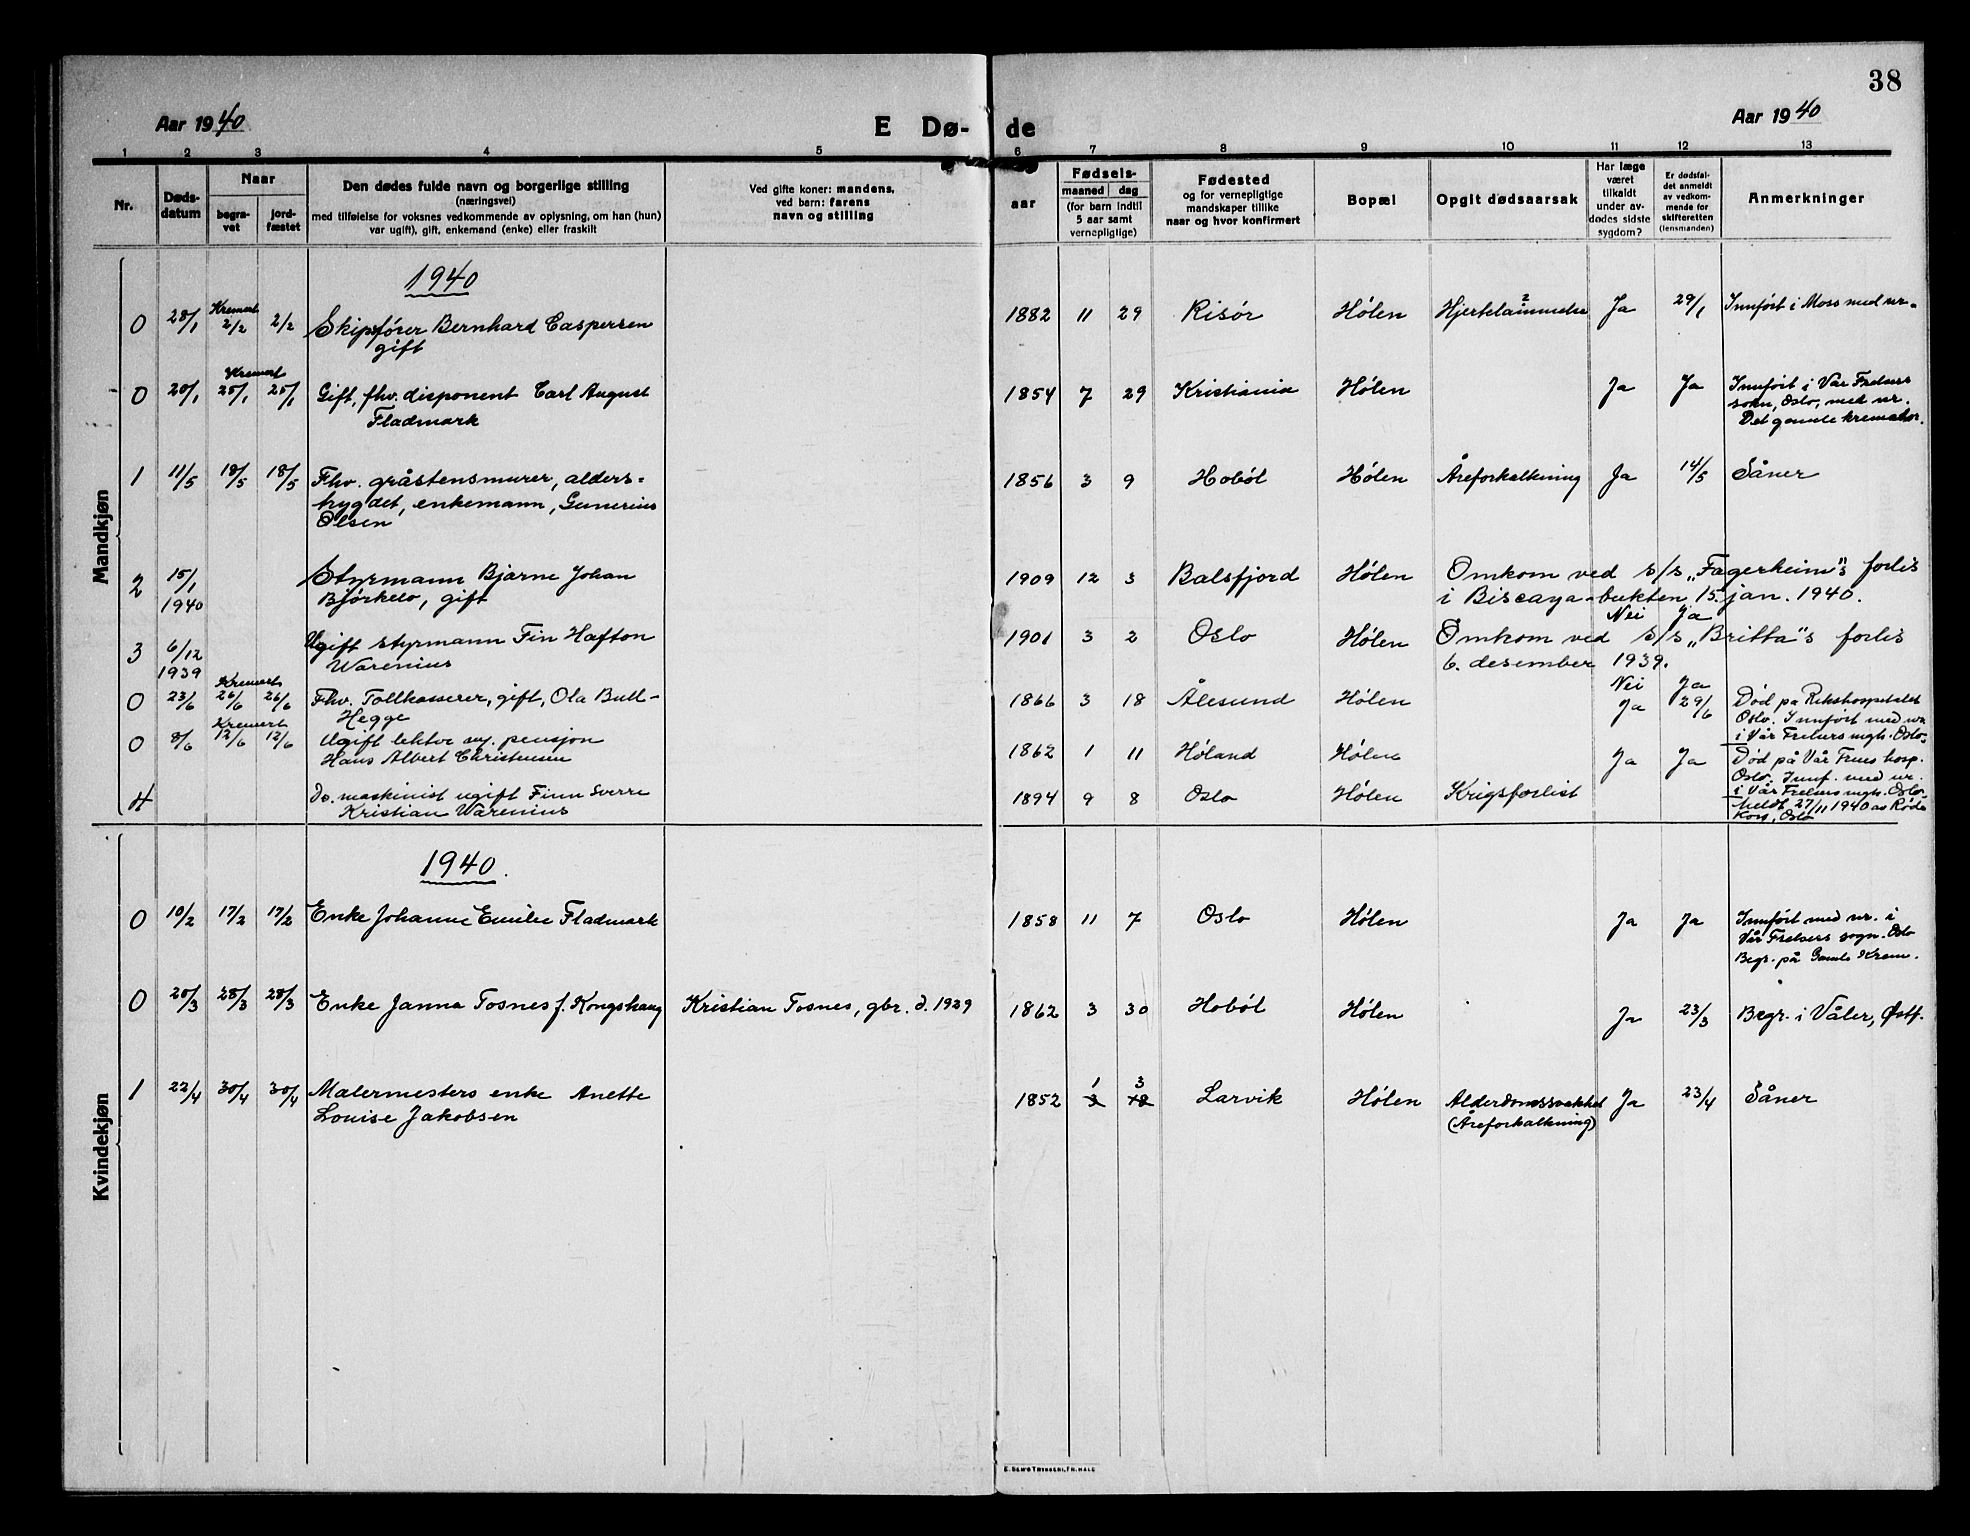 38
Aar 1940
E Dø-
de
Aar 1940
1 2 3 4 5 6 7 8 9 10 11 12 13
Nr.
Døds-
datum
Naar
begra-
vet
jord-
fæstet
Den dødes fulde navn og borgerlige stilling
(næringsvei)
med tilføielse for voksnes vedkommende av oplysning, om han (hun)
var ugift), gift, enkemand (enke) eller fraskilt
Ved gifte koner: mandens,
ved barn: farens
navn og stilling
Fødsels-
aar
maaned
dag
(for barn indtil
5 aar samt
vernepligtige)
Fødested
og for vernepligtige
mandskaper tillike
naar og hvor konfirmert
Bopæl
Opgit dødsaarsak
Har læge
været
tilkaldt
under av-
dødes sidste
sygdom?
Er dødsfal-
det anmeldt
av vedkom-
mende for
skifteretten
(lensmanden)
Anmerkninger
Mandkjøn
1940
0 28/1 Kremert 2/2 2/2 Skipsfører Bernhard Caspersen
gift
1882 11 29 Risør Hølen Hjertelammelse ? Ja 29/1 Innført i Moss med nr.
0 20/1 Kremert 25/1 25/1 Gift, fhv. disponent Carl August
Fladmark
1854 7 29 Kristiania Hølen Ja Ja Innført i Vår Frelsers
sokn, Oslo, med nr.
Det gamle kremator.
1 11/5 18/5 18/5 Fhv. gråstensmurer, alders-
trygdet, enkemann, Gunerius
Olsen
1856 3 9 Hobøl Hølen Åreforkalkning Ja 14/5 Såner
2 15/1 1940 Styrmann Bjarne Johan
Bjørkelo, gift
1909 12 3 Balsfjord Hølen Omkom ved s/s "Fagerheim"s forlis
i Biscaya-bukten 15. jan. 1940.
Nei Ja
3 6/12 1939 Ugift styrmann Fin Hafton
Warenius
1901 3 2 Oslo Hølen Omkom ved s/s "Britta"s forlis
6. desember 1939.
Nei Ja
0 23/6 Kremert 26/6 26/6 Fhv. Tollkasserer, gift, Ola Bull-
Hegge
1866 3 18 Ålesund Hølen Ja 29/6 Død på Rikshospitalet
Oslo. Innført med nr.
i Vår Frelsers mgh. Oslo.
0 8/6 Kremert 12/6 12/6 Ugift lektor m/ pensjon
Hans Albert Christensen
1862 1 11 Høland Hølen Ja Ja Død på Vår Frues hosp.
Oslo. Innf. med nr.
i Vår Frelsers mgh. Oslo.
4 Do. maskinist ugift Finn Sverre
Kristian Warenius
1894 9 8 Oslo Hølen Krigsforlist Meldt 27/11 1940 av Røde
Kors, Oslo
Kvindekjøn
1940.
0 10/2 17/2 17/2 Enke Johanne Emilie Fladmark
1858 11 7 Oslo Hølen Ja Ja Innført med nr. i
Vår Frelsers sogn. Oslo
Begr. på Gamle Krem.
0 20/3 28/3 28/3 Enke Janna Tosnes f. Kongshaug Kristian Tosnes, gbr. d. 1929
1862 3 30 Hobøl Hølen Ja 23/3 Begr. i Våler, Østf.
1 22/4 30/4 30/4 Malermesters enke Anette
Louise Jakobsen
1 3
1852 3 18 Larvik Hølen Alderdomssvakhet Ja 23/4 Såner
(Åreforkalkning)